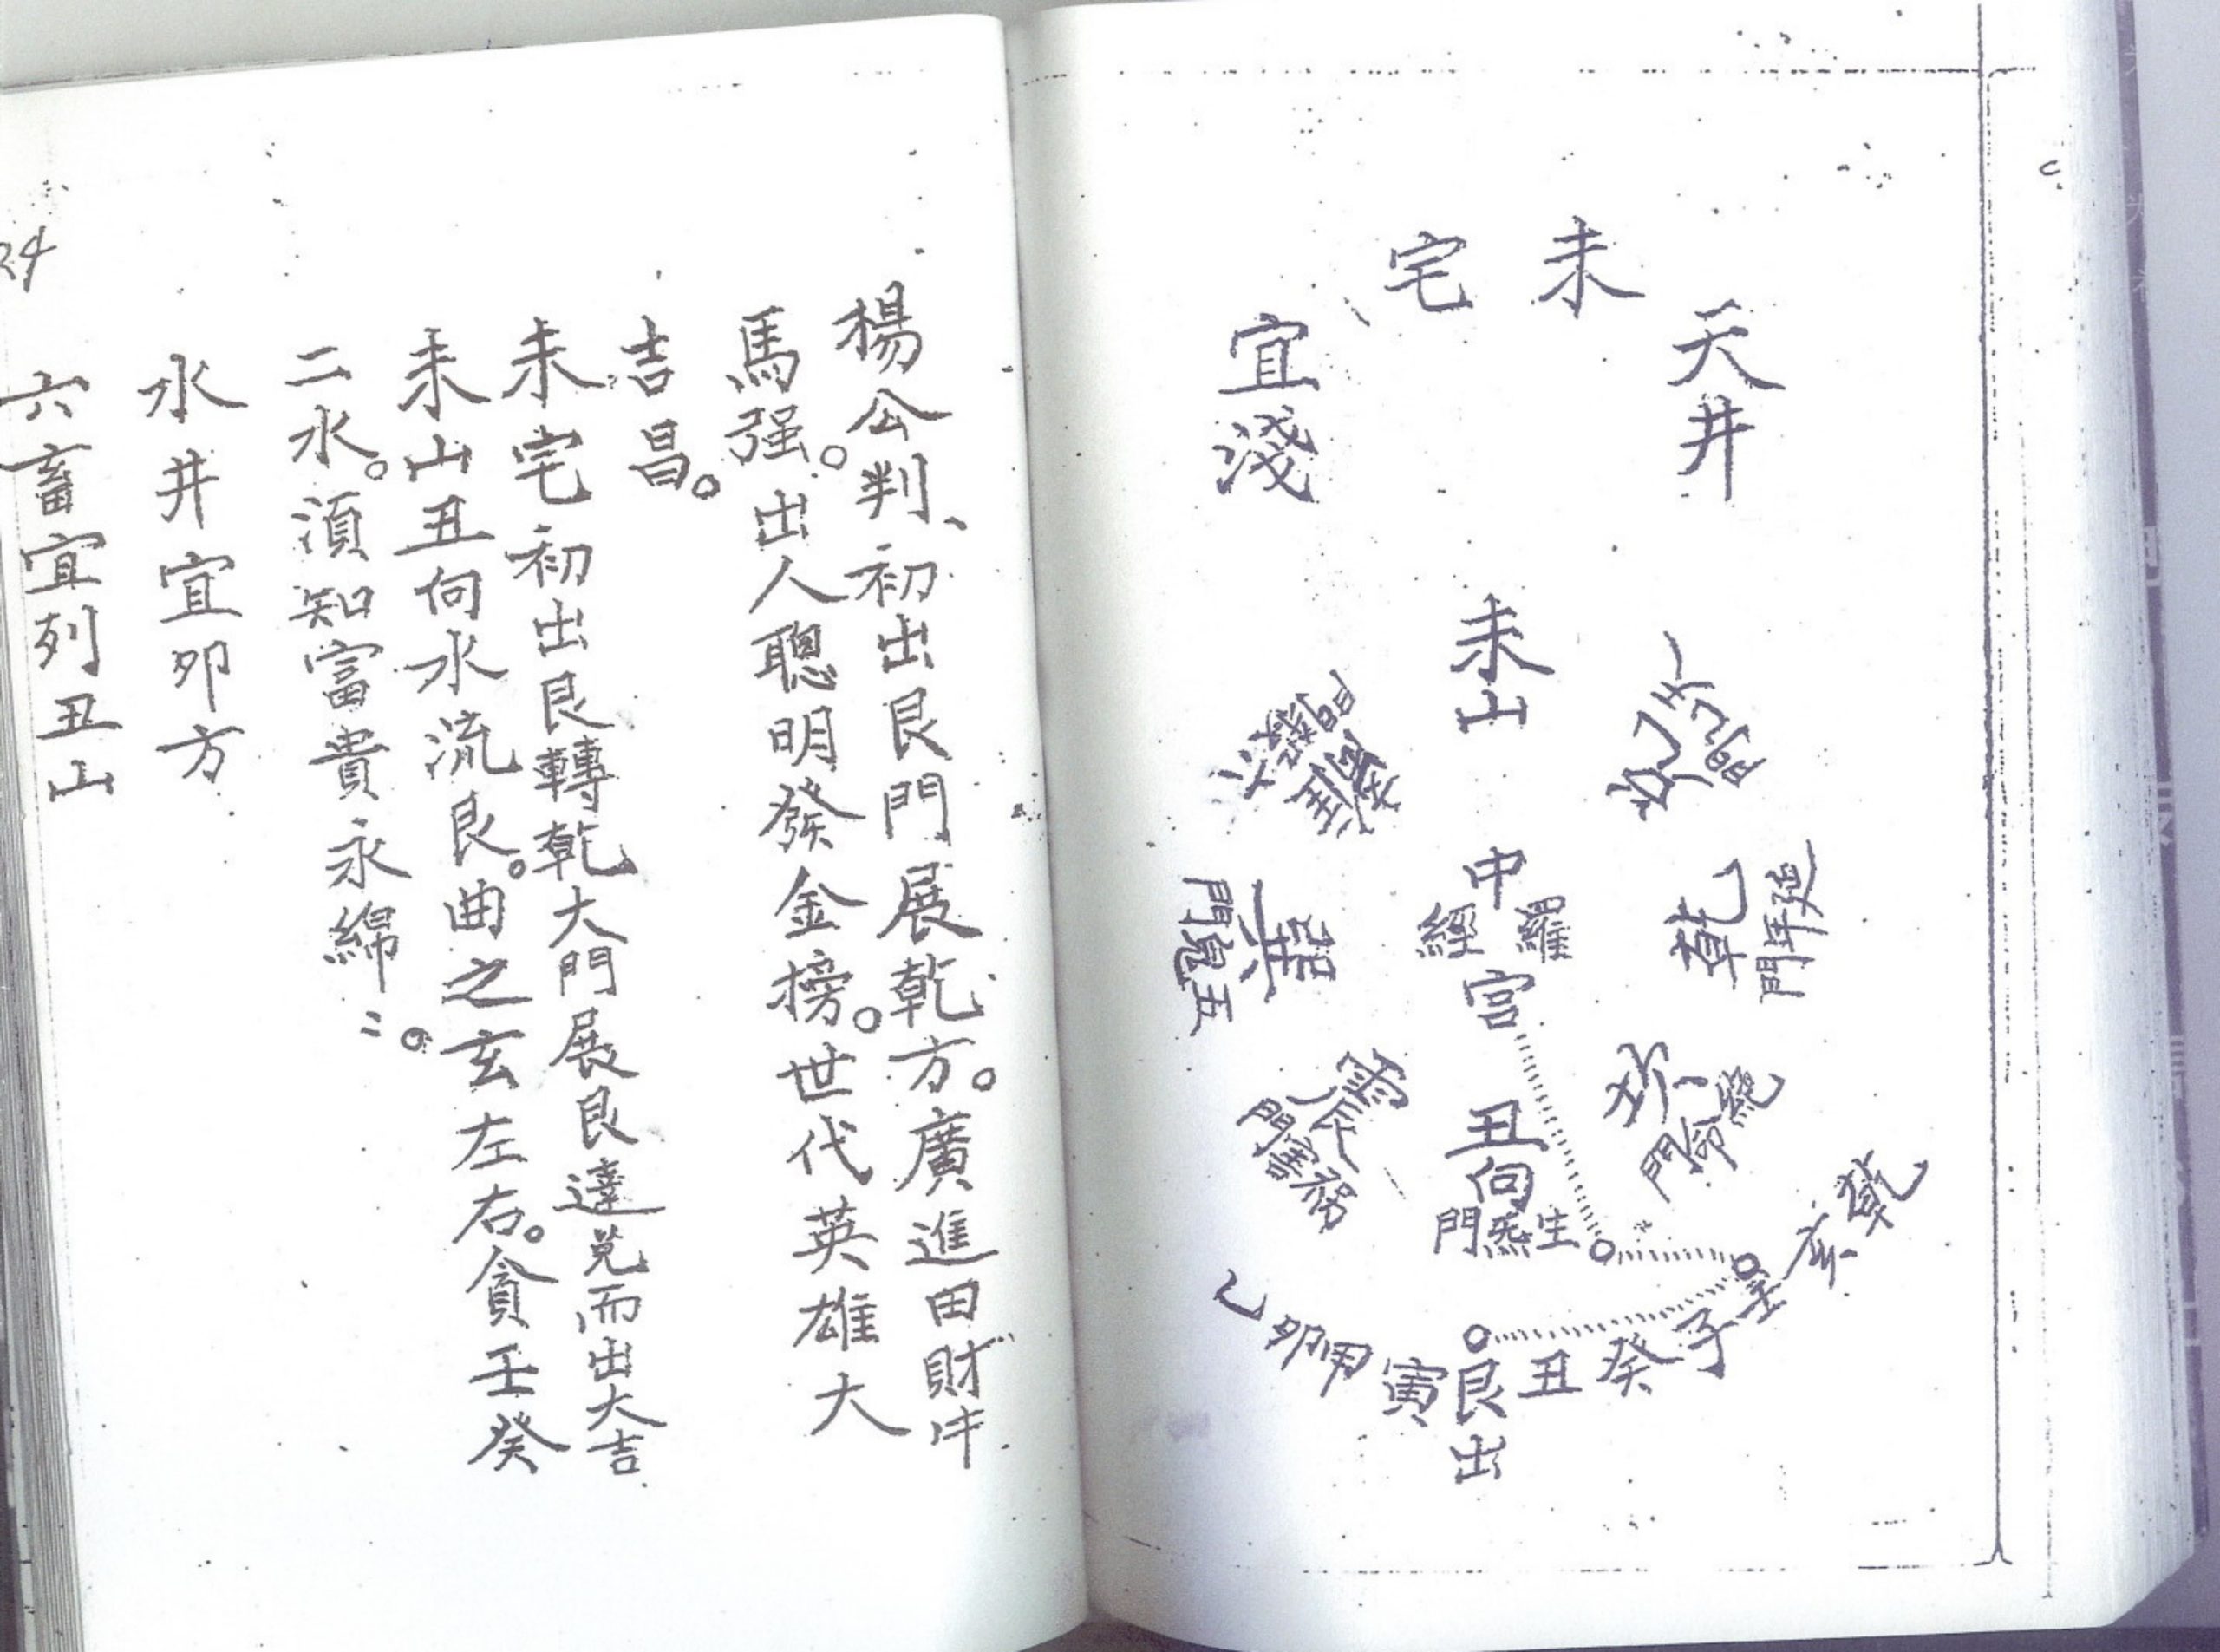 未宅
天井
宜淺
未山
乾
延年門
中
宮
五鬼門
坎
絕命門
震
禍害門
丑向
生炁門
乾亥壬子癸丑艮寅甲卯乙
出
楊公判、初出艮門展乾方。廣進田財牛
馬强。出人聰明發金榜。世代英雄大
吉昌。
未宅初出艮轉乾大門展艮達兌而出大吉
未山丑向水流艮。曲之玄左右。貪壬癸
二水。須知富貴永綿〻。
水井宜卯方
六畜宜列丑山
24